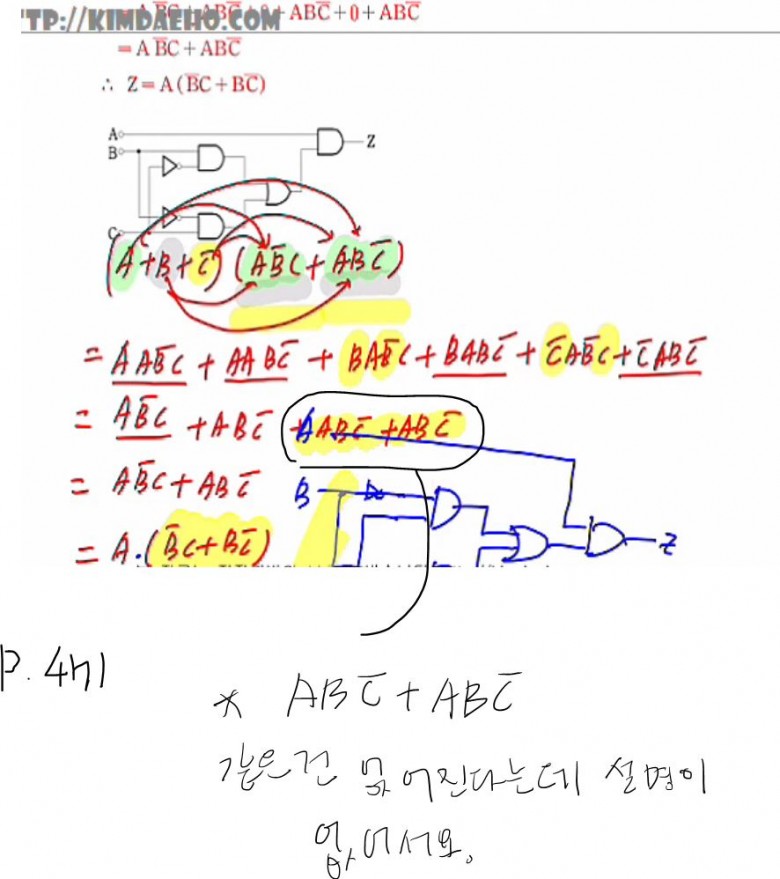 TP://KIMDAEHO.COM + ABC̅ + 0 + ABC̅
= A B̅C + ABC̅
∴ Z = A (B̅C + BC̅)
A
B
Z
C
(A + B + C̅) (AB̅C + ABC̅)
= AAB̅C + AABC̅ + BAB̅C + BABC̅ + C̅AB̅C + C̅ABC̅
= AB̅C + ABC̅ + ABC̅ + ABC̅
A
= AB̅C + ABC̅
B
= A·(B̅C + BC̅)
Z
P. 471
* ABC̅ + ABC̅
같은건 없어진다는데 설명이
없어서요.